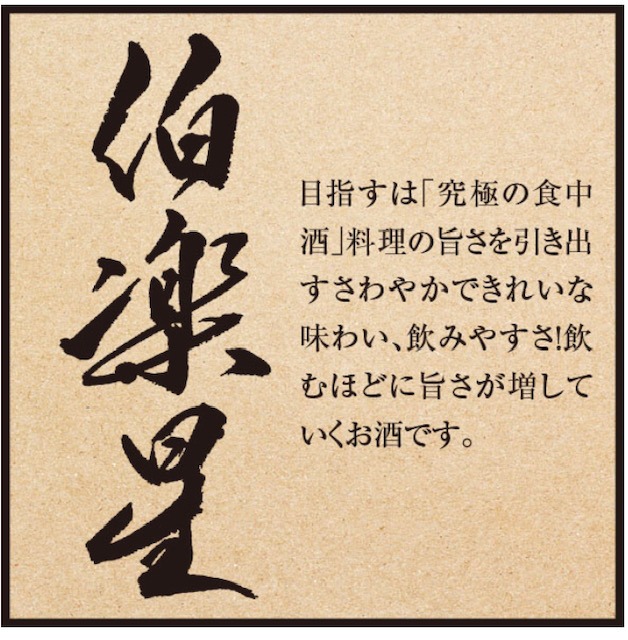 伯楽星
目指すは｢究極の食中
酒｣料理の旨さを引き出
すさわやかできれいな
味わい､飲みやすさ!飲
むほどに旨さが増して
いくお酒です。